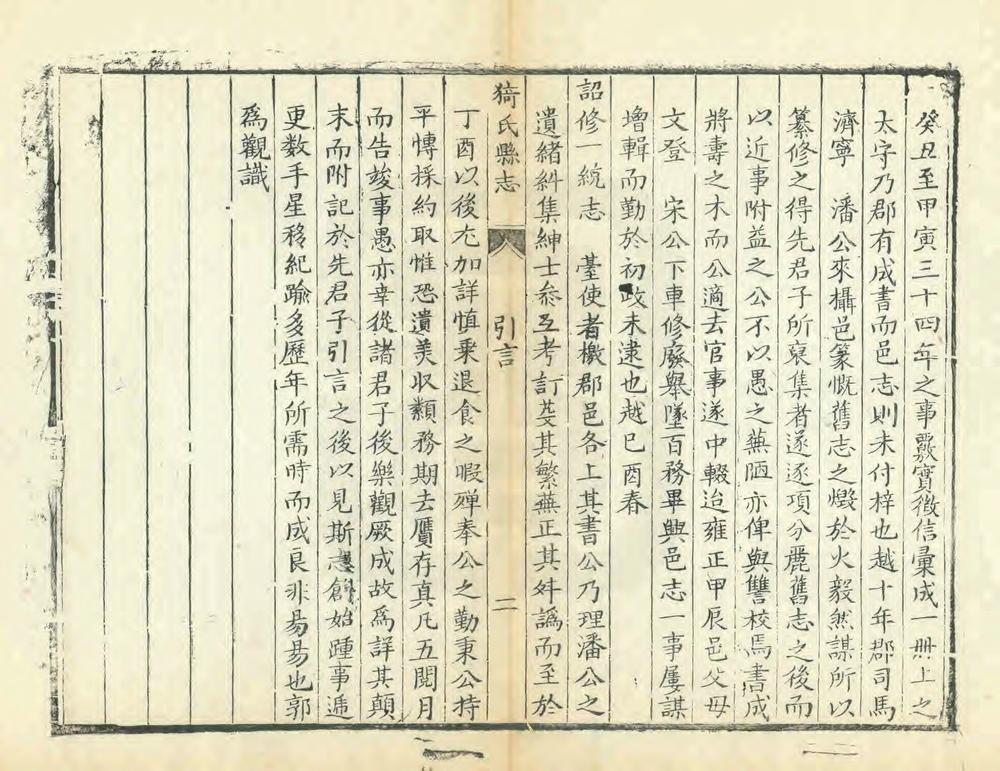 癸丑至甲寅三十四年之事覈實徵信彙成一冊上之
太守乃郡有成書而邑志則未付梓也越十年郡司馬
濟寧 潘公來攝邑篆慨舊志之燬於火毅然謀所以
纂修之得先君子所裒集者遂逐項分麗舊志之後而
以近事附益之公不以愚之蕪陋亦俾與讐校焉書成
將壽之木而公適去官事遂中輟迨雍正甲辰邑父母
文登 宋公下車修廢舉墜百務畢興邑志一事屢謀
增輯而勤於初政未逮也越己酉春
詔修一統志 臺使者檄郡邑各上其書公乃理潘公之
遺緒糾集紳士叅互考訂芟其繁蕪正其舛譌而至於
猗氏縣志 引言 二
丁酉以後尤加詳慎乗退食之暇殫奉公之勤秉公持
平愽採約取惟恐遺美収纇務期去贗存真凡五閱月
而告竣事愚亦幸從諸君子後樂觀厥成故爲詳其顛
末而附記於先君子引言之後以見斯志創始踵事遞
更数手星移紀踰多歷年所需時而成良非易易也郭
爲觀識